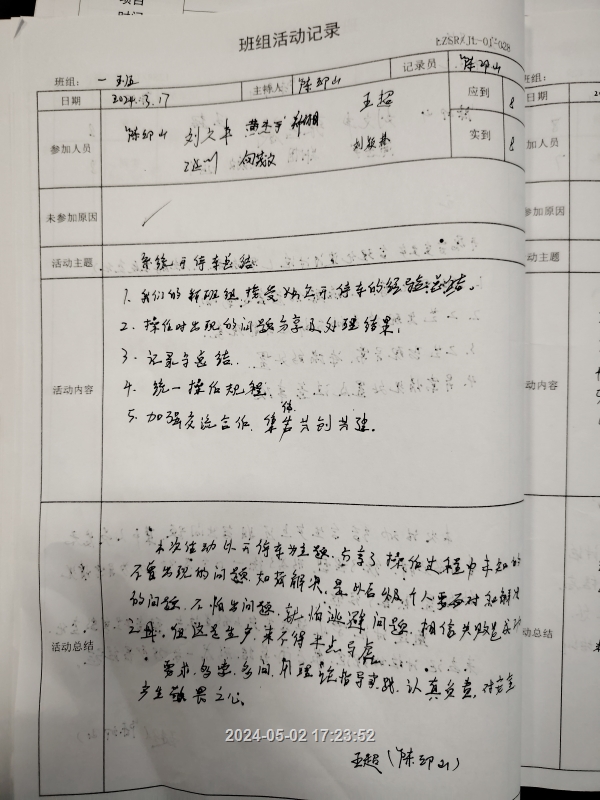 项目
时间
班组活动记录
班组：一
日期 2024.3.17 主持人 陈印山 记录员 陈印山
王超 应到 8
参加人员 陈印山 刘
实到 8
未参加原因
活动主题 系统开停车总结
活动内容
1. 我们的 班组 开停车的经验总结。
2. 操作时出现的问题分享及处理结果。
3. 记录与总结。
4. 统一操作规程
5. 加强交流合作、集体共创共建。
活动总结
本次活动以开停车为主题，分享了操作过程中未知的
不曾出现的问题 如何解决，是以后 个人要面对和解决
的问题，不怕出问题，就怕逃避问题，相信失败是成功
之母，但这是生产 来不得半点马虎
要求，多学，多问，用理论指导实践，认真负责，对安全
产生敬畏之心。
王超（陈印山）
班组：
日期
加人员
参加原因
动主题
动内容
动总结
2024-05-02 17:23:52